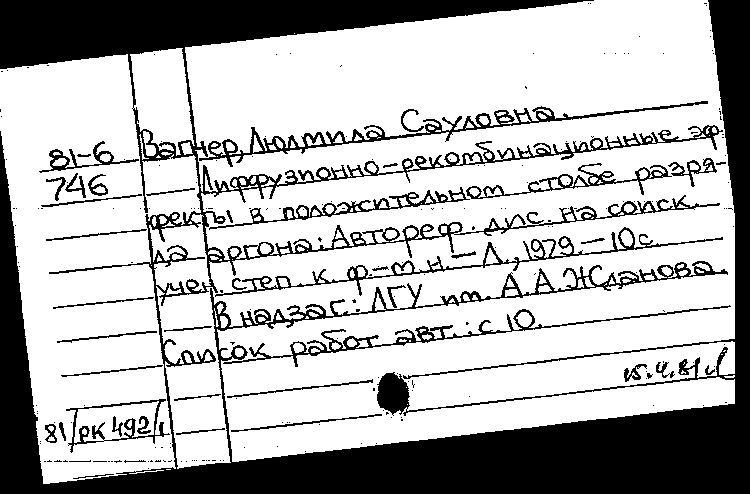 81-6 Вагнер, Людмила Сауловна.
746 Диффузионно-рекомбинационные эф-
фекты в положительном столбе разря-
да аргона: Автореф. дис. на соиск.
учен. степ. к. ф.-м. н. - Л., 1979. - 10 с.
В надзаг.: ЛГУ им. А. А. Жданова.
Список работ авт.: с. 10.
15.4.81
81/РК 492/1